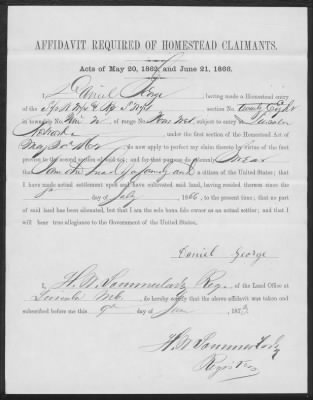 AFFIDAVIT REQUIRED OF HOMESTEAD CLAIMANTS.
Acts of May 20, 1862, and June 21, 1866.
I, Daniel George, having made a Homestead entry
of the section No. twenty Eight
in township No. of range No. subject to entry at Lincoln
Nebraska under the first section of the Homestead Act of
May 20 do now apply to perfect my claim thereto by virtue of the first
proviso to the second section of said act; and for that purpose do solemnly Swear
that I am the head of a family and a citizen of the United States; that I
have made actual settlement upon and have cultivated said land, having resided thereon since the
day of July, 1866, to the present time; that no part
of said land has been alienated, but that I am the sole bona fide owner as an actual settler; and that I will
bear true allegiance to the Government of the United States.
Daniel George
I, H. W. Sommerlad, of the Land Office at
Lincoln Neb, do hereby certify that the above affidavit was taken and
subscribed before me this 9th day of 187
Register